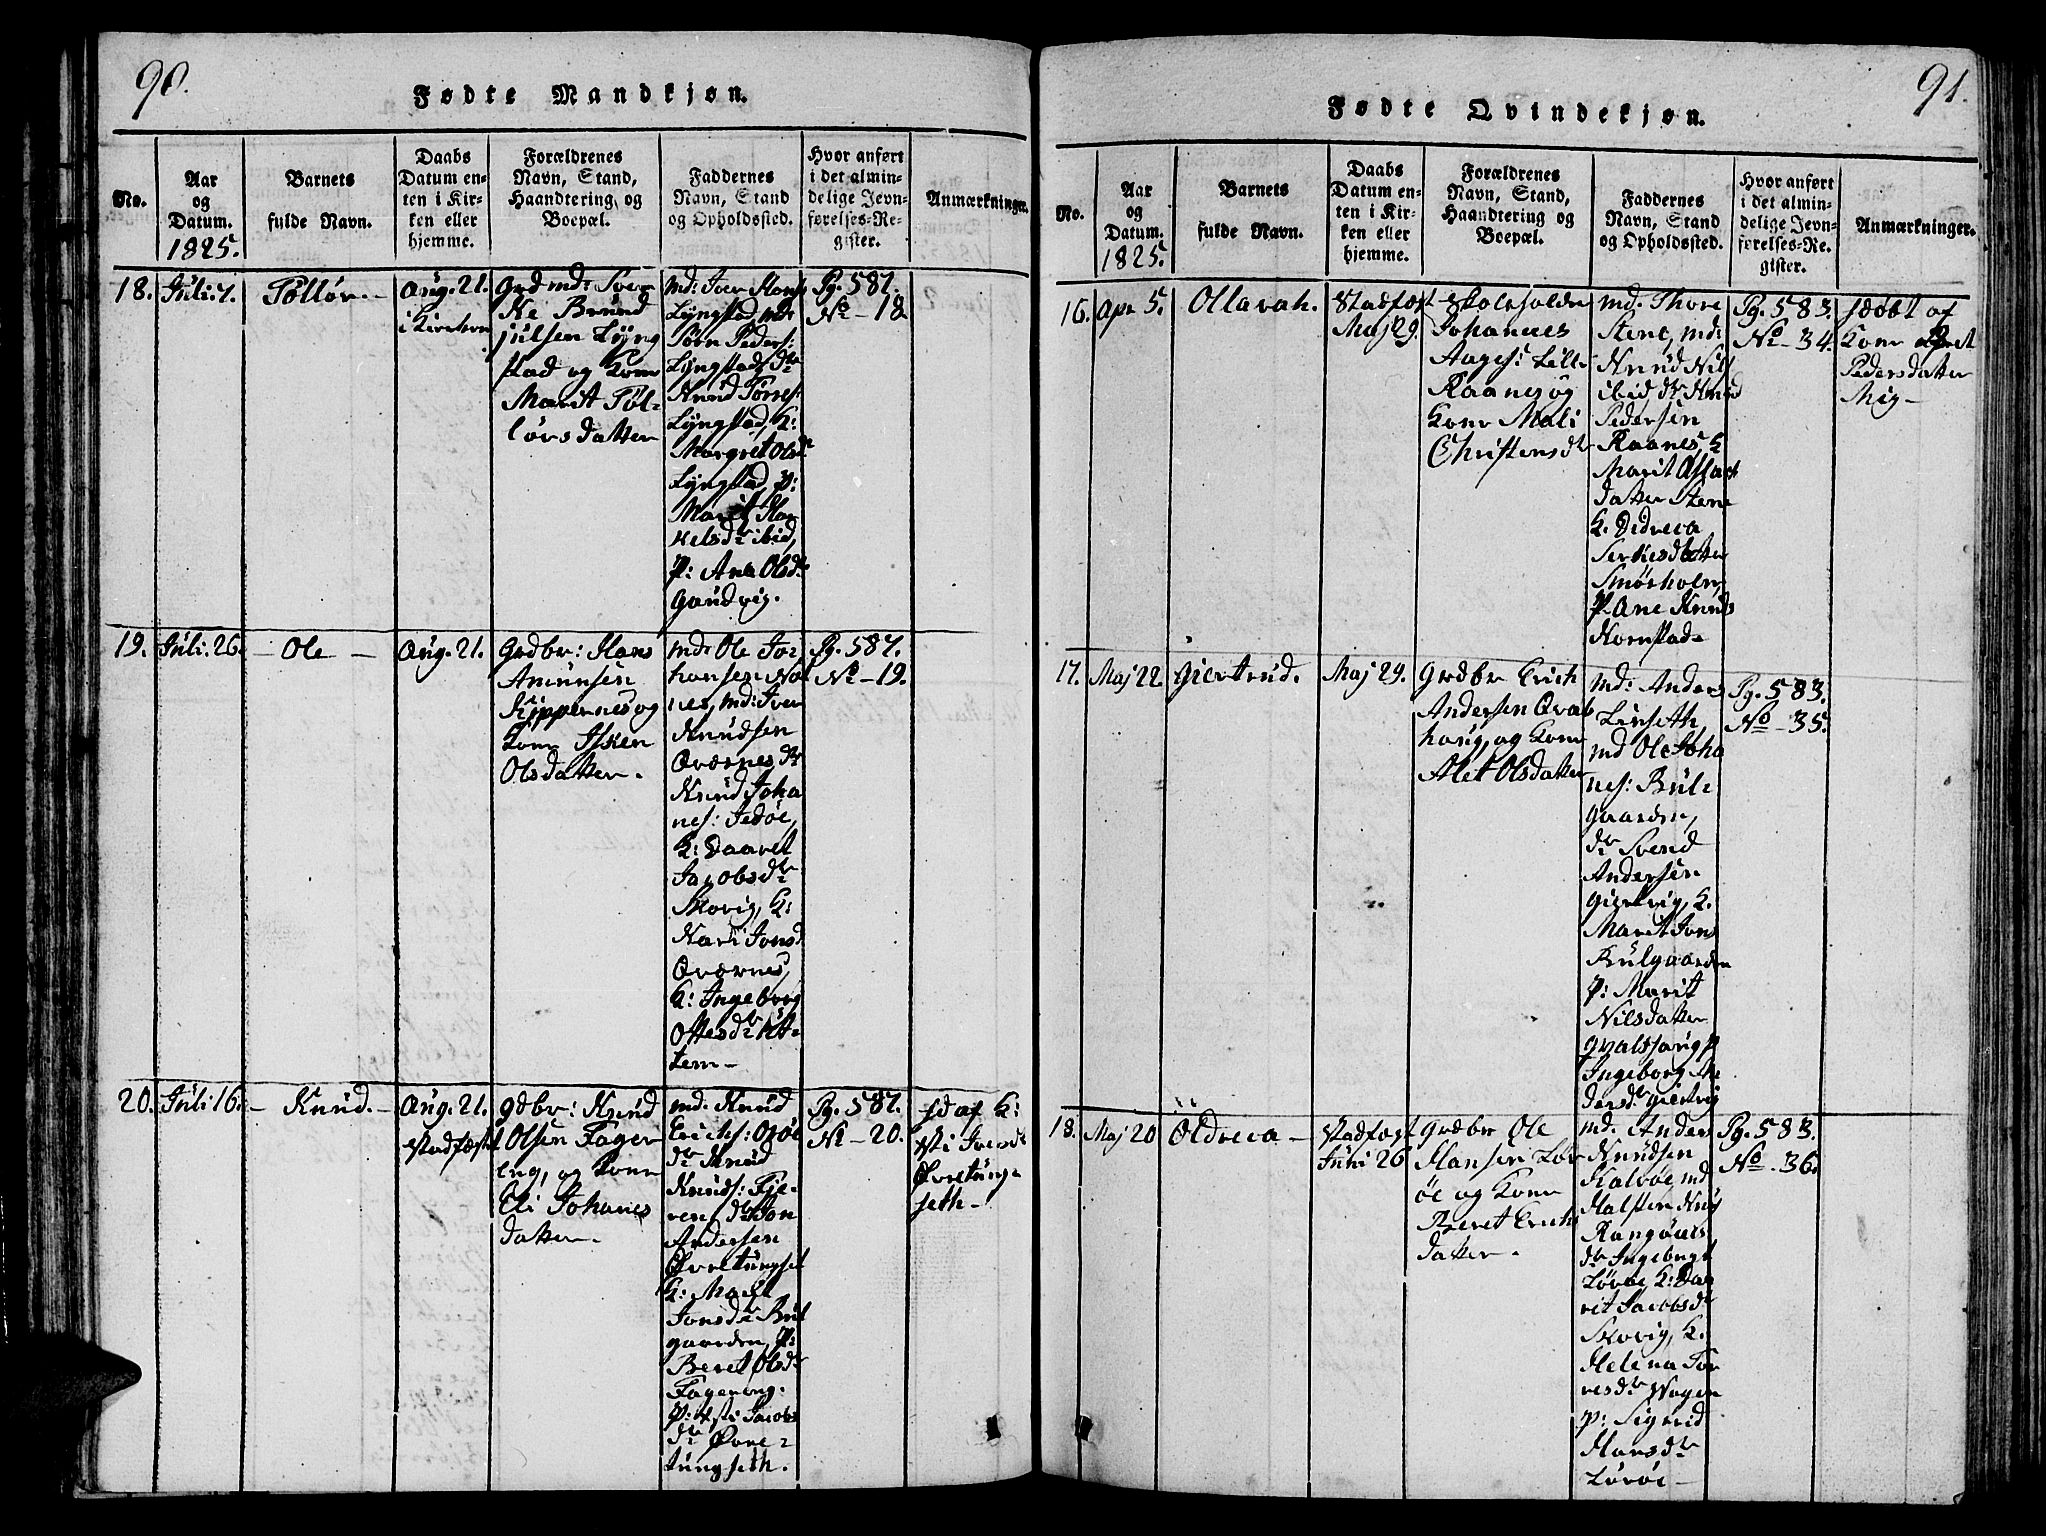 90.
Fødte Mandkjøn.
No.
Aar
og
Datum.
1825.
Barnets
fulde Navn.
Daabs
Datum en-
ten i Kir-
ken eller
hjemme.
Forældrenes
Navn, Stand,
Haandtering og
Boepæl.
Faddernes
Navn, Stand
og Opholdssted.
Hvor anført
i det almin-
delige Jevn-
førelses-Re-
gister.
Anmærkninger.
18.
Juli. 7.
Tollör.
Aug. 21.
i Kirchen
Grdmd: Iver
Bründ
julsen Lÿng
stad og Kone
Marit Tol-
lörsdatter
md: Iver Hans
Lÿngstad, md:
Törn Peders:
Lÿngstad, dr
Knud Torres:
Lÿngstad, K:
Margret Olsdr
Lÿngstad, P:
Marit
ibid,
P: Ane Olsdr
Gaudvig.
Pg. 587.
No - 18
19.
Juli. 26.
Ole
Aug. 21.
Grdbr: Hans
Amunsen
Kippernes og
Kone
Olsdatter.
md: Ole Jo-
hansen
nes, md: Iver
Knudsen
Oværnes, dr
Knud Joha
nes:
K: Daaret
Jacobsdr
Skovig, K:
Kari Jonsd
Oværnes,
K: Ingeborg
tem
Pg. 587.
No - 19.
20.
Juli 16.
Knud.
Aug. 21.
stadfæstet
Gdbr: Knud
Olsen Fager
eng, og Kone
Eli Johanes
datter.
md. Knud
Erichs:
dr Knud
Knuds:
dr Jon
Andersen
Øvretungset
K: Marit
Jonsdr Bul
gaarden, P:
Beret Olsdr
Fagereng:
P: Jacobs
dr Øvre-
tungseth.
Pg. 587.
No - 20.
hd af K:
Iversdr
Øvretung-
seth.
91.
Fødte Qvindekjøn.
No.
Aar
og
Datum.
1825.
Barnets
fulde Navn.
Daabs
Datum en-
ten i Kir-
ken eller
hjemme.
Forældrenes
Navn, Stand,
Haandtering og
Boepæl.
Faddernes
Navn, Stand
og Opholdssted.
Hvor anført
i det almin-
delige Jevn-
førelses-Re-
gister.
Anmærkninger.
16.
Apr. 5.
Ollavah.
Stadfæst
Maj 29.
Skoleholder
Johannes
Aages: Lill-
Raanes og
Kone Mali
Christensdr
md. Thore
Stene, md:
Knud Nils
ibid, dr Knud
Pedersen
Raanes, K
Marit
datter Stene
K: Dedreca
datter
Smörholm,
P. Ane Knuds
Kornstad
Pg. 583.
No - 34.
hdøbt af
Kone Beret
Pedersdatter
Mig
17.
Maj 22.
Giertrud.
Maj 29.
Grdbr Erich
Andersen Qval
houg, og Kone
Alet Olsdatter
md: Anders
Linseth,
md Ole Joha
nes: Bul-
gaarden,
dr Svend
Andersen
Giertvig, K.
Marit Jons
Bulgaarden
P: Marit
Nilsdatter
Qvalhoug, P
Ingeborg An
dersdr Giertvig
Pg. 583.
No - 35.
18.
Maj 20
Oldreca
Stadfæst
Juni 26
Grdbr Ole
Hansen Lor
öe og Kone
Beret Erichs
datter.
md. Anders
Knudsen
Kalvöe, md
Halsten
dr Ingebrigt
Loröe, K: Daa
rit Jacobsdr
Skovig, K.
Helena Tor
resdr Wogen
P: Sigrid
Hansdr
Loröe
Pg. 583.
No. 36.